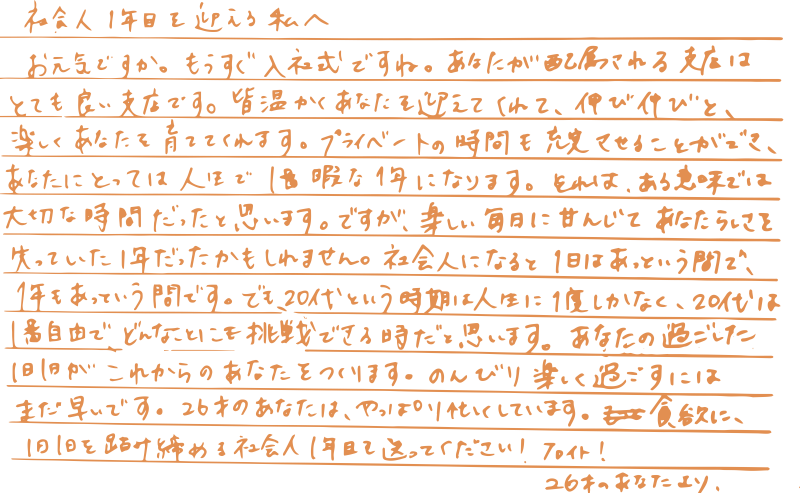 社会人1年目を迎える私へ
お元気ですか。もうすぐ入社式ですね。あなたが配属される支店は
とても良い支店です。皆温かくあなたを迎えてくれて、伸び伸びと、
楽しくあなたを育ててくれます。プライベートの時間も充実させることができ、
あなたにとっては人生で1番暇な1年になります。それは、ある意味では
大切な時間だったと思います。ですが、楽しい毎日に甘んじてあなたらしさを
失っていた1年だったかもしれません。社会人になると1日はあっという間で、
1年もあっという間です。でも、20代という時期は人生に1度しかなく、20代は
1番自由で、どんなことにも挑戦できる時だと思います。あなたの過ごした
1日1日がこれからのあなたをつくります。のんびり楽しく過ごすには
まだ早いです。26才のあなたは、やっぱり忙しくしています。貪欲に、
1日1日を踏み締める社会人1年目を送ってください!ファイト!
26才のあなたより、